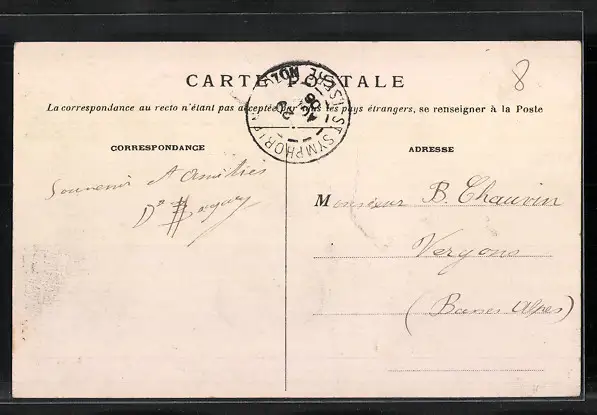 8
CARTE POSTALE
La correspondance au recto n'étant pas acceptée par tous les pays étrangers, se renseigner à la Poste
CORRESPONDANCE
ADRESSE
Souvenir et Amitiés
Dr
Monsieur B. Chauvin
Vergons
(Basses Alpes)